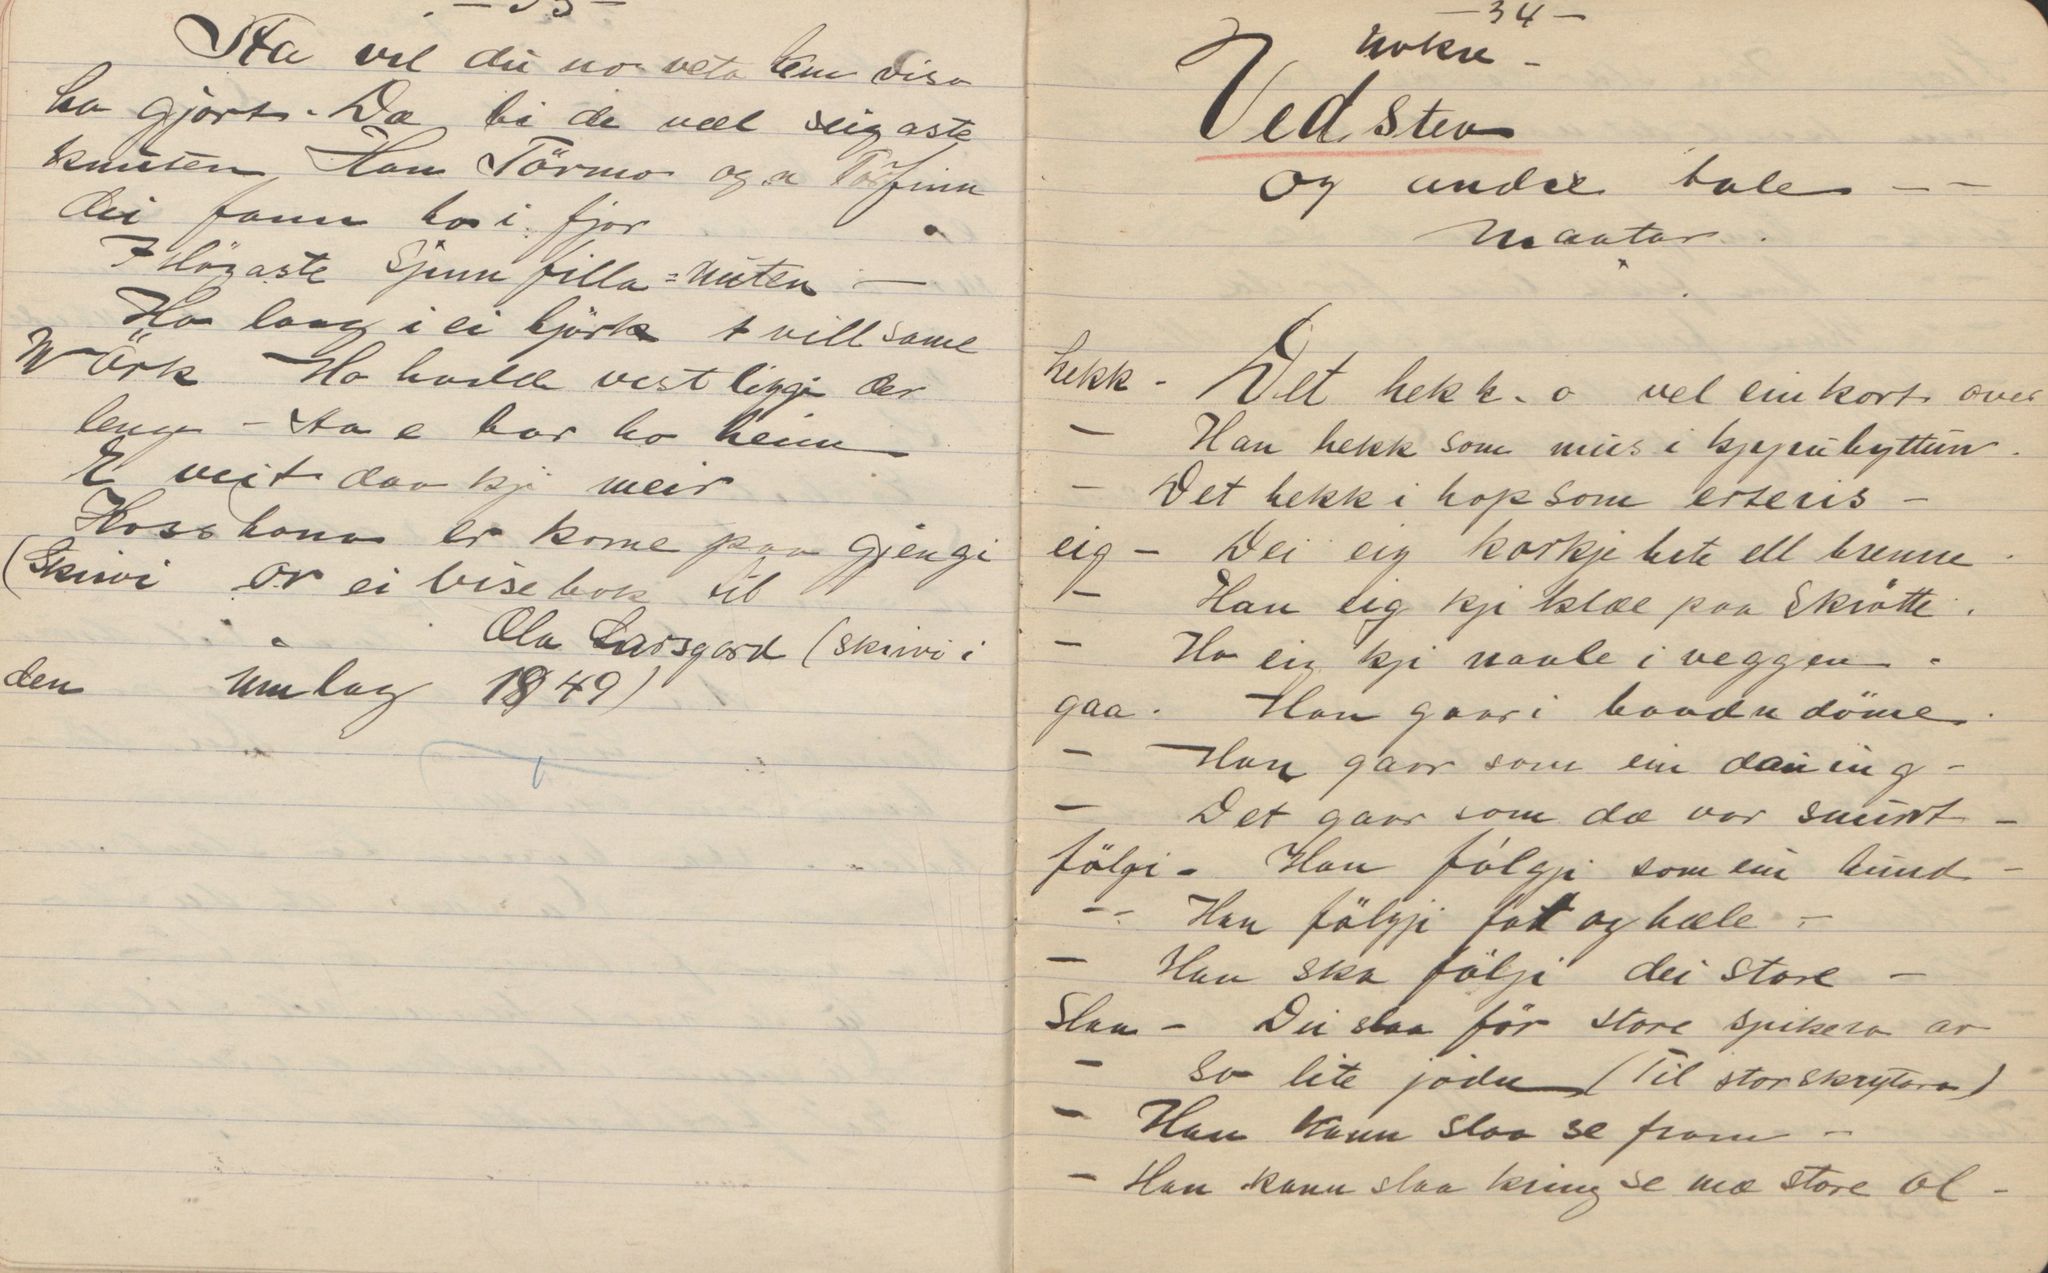 - 33 -
Sta vil du no veta kem visa
ha gjort. Da bi de væl seigaste
knuten Han Törmo og n Torfinn
dei fann ho i fjor
I Högaste Sjinnfilla=nuten —
Ho laag i ei björk tvillsame
Mörk Ho hadde vist liggji der
lengi - sta e bar ho heim
E veit daa kji meir
Hoss hono er kome paa gjengi
(Skrivi or ei visebok til
Ola Larsgard (skrivi i
den umlag 1849)
- 34 -
Nokre -
Vedstev
og andre tale - -
maatar.
hekk - Det hekk. o vel ein kort over
- Han hekk som mus i kjppubyttun.
- Det hekk i hop som erteris -
eig - Dei eig korkje bite ell brenne.
- Han eig kji klæe paa Skrötte.
- Ho eig kji naale i veggen.
gaa. Han gaar i baandu döme.
- Han gaar som ein dauing -
- Det gaar som da var smurt -
fölgi - Han fölgji som ein hund -
- - Han fölgji fot og hæle -
- Han ska följi dei store -
Slaa - Dei slaa för store spikera av
- so lite jödn (Til storskrytara)
- Han kann slaa se fram -
- Han kann slaa kring se mæ store ol -